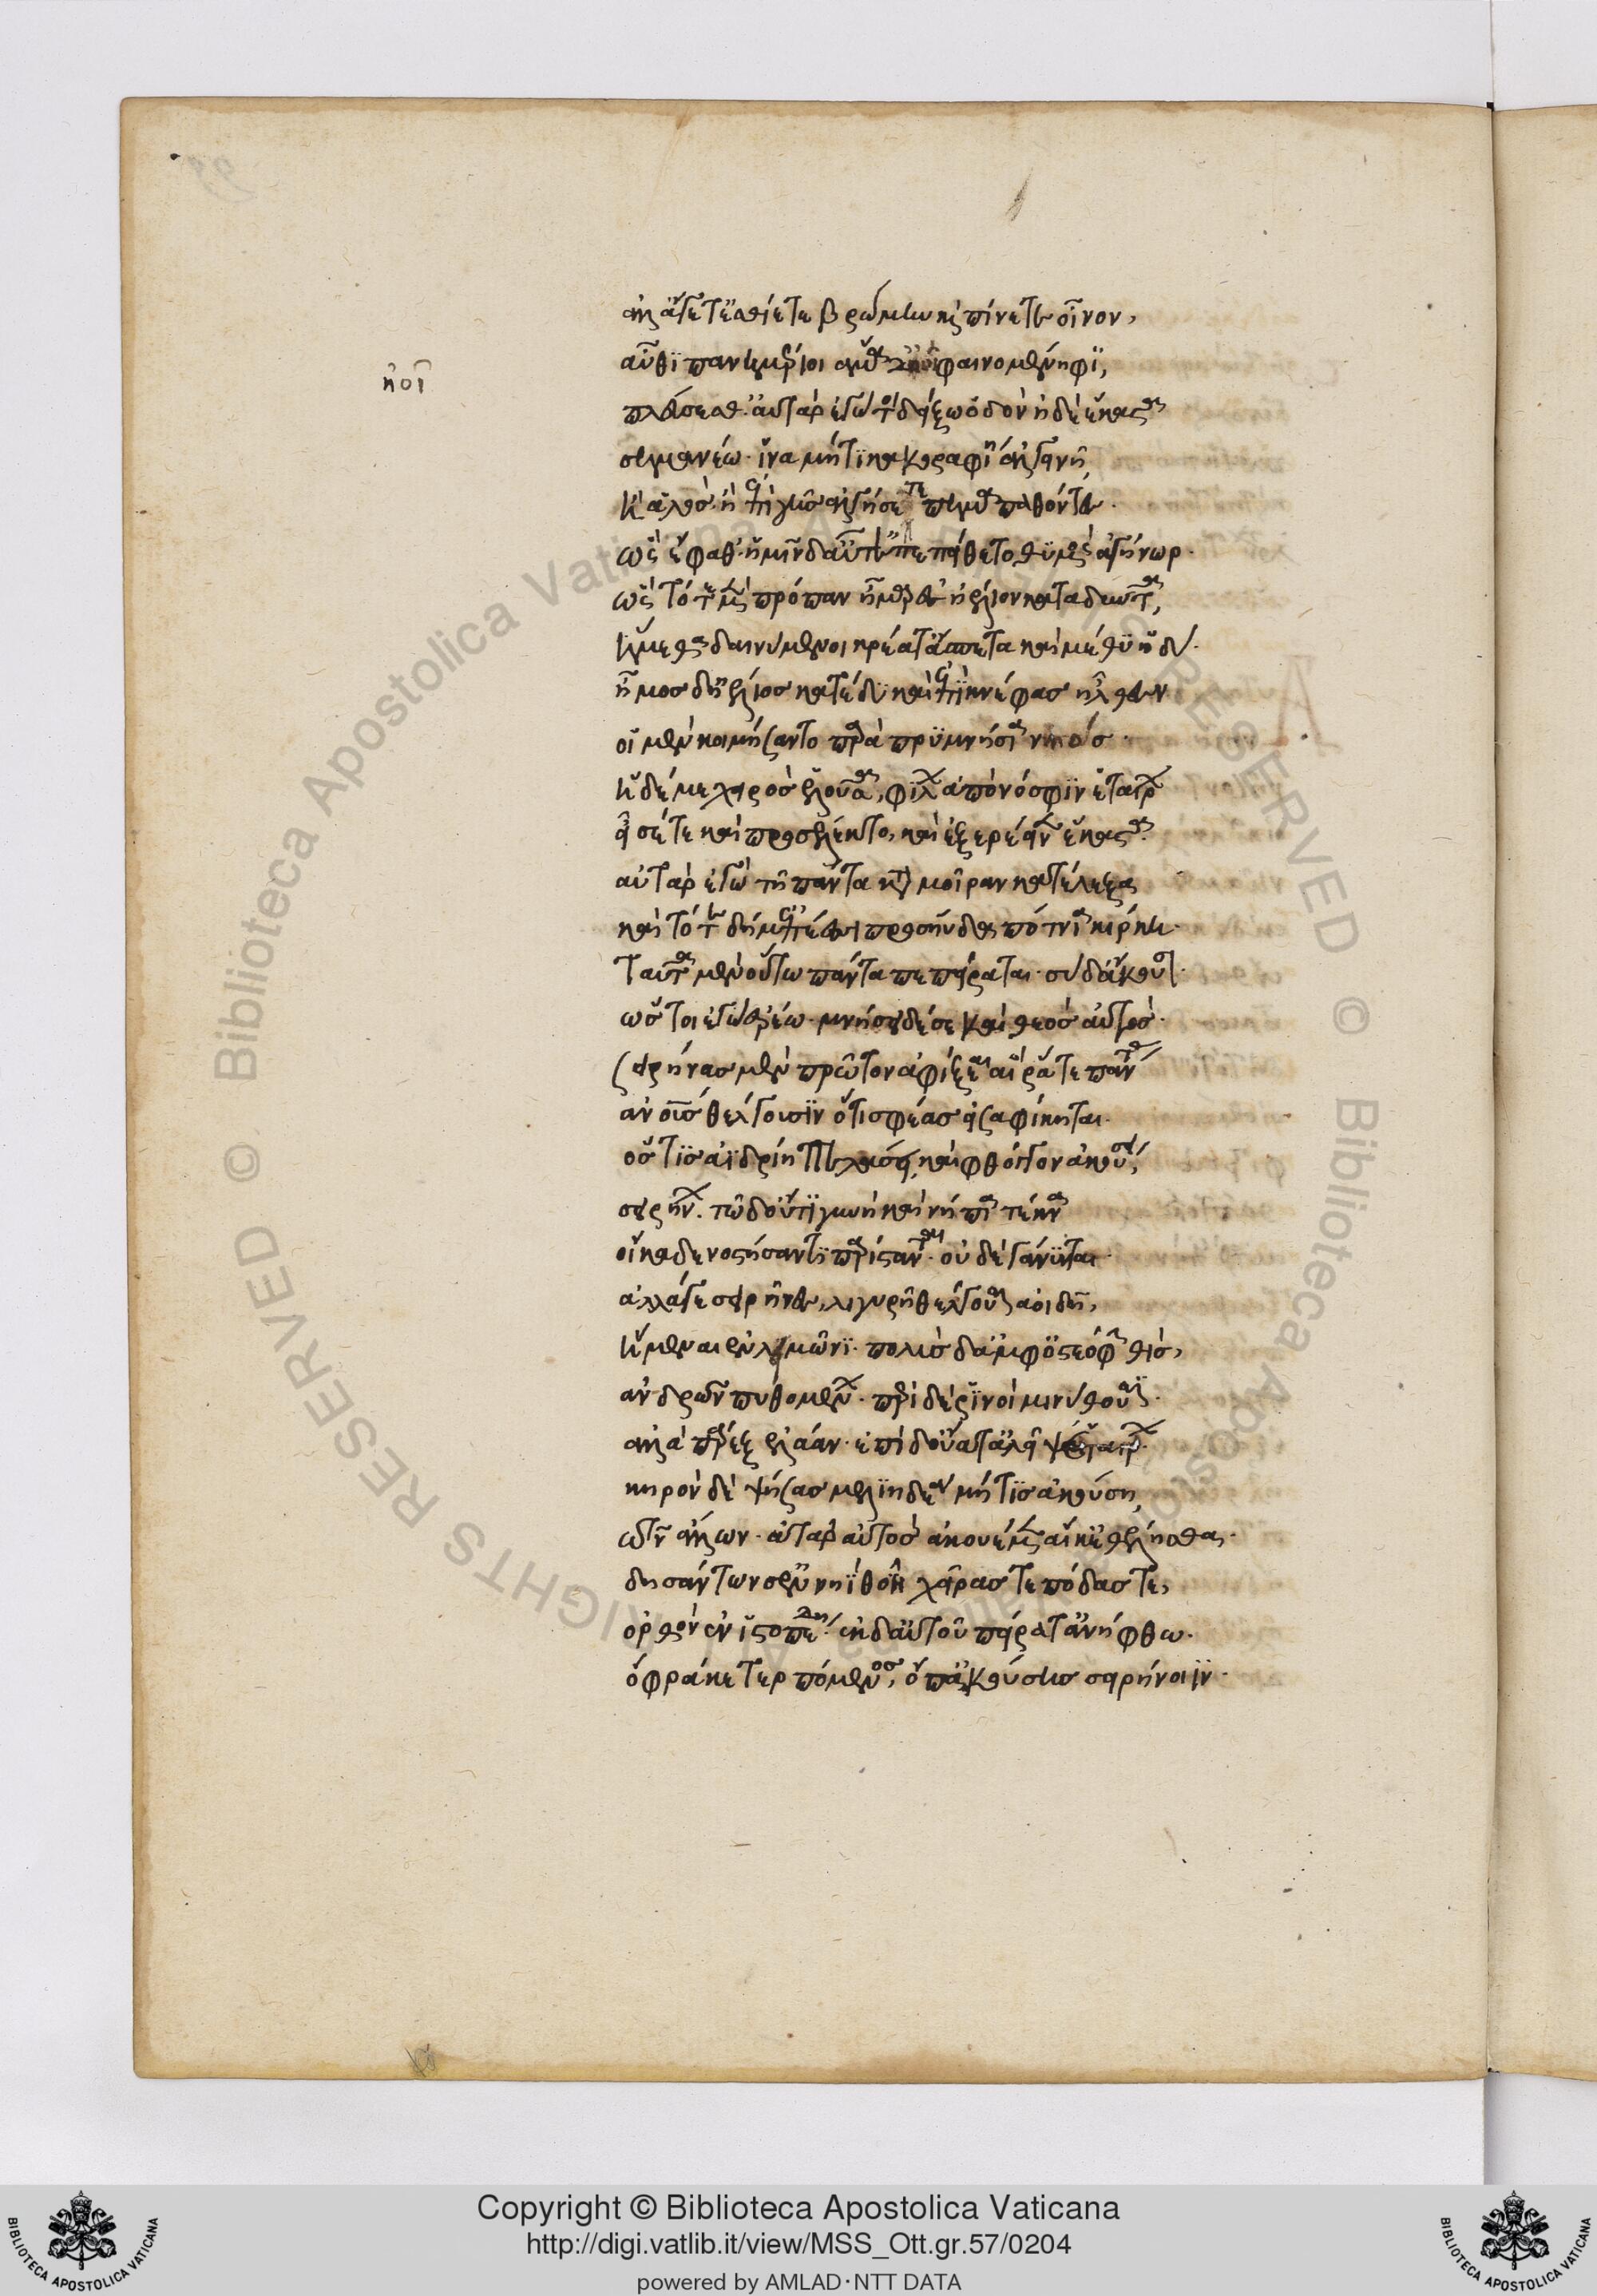 ἀλλ' ἄγετ' ἐσθίετε βρώμην καὶ πίνετε οἶνον,
αὖθι πανημέριοι ἅμα δ' ἠοῖ φαινομένηφι,
ἠοῖ
πλεύσεσθ'. αὐτὰρ ἐγὼ δείξω ὁδὸν ἠδὲ ἕκαστα
σημανέω. ἵνα μή τι κακορραφίη ἀλεγεινῇ
ἢ ἁλὸς ἢ ἐπὶ γῆς ἀλγήσετε πῆμα παθόντες.
ὣς ἔφαθ'. ἡμῖν δ' αὖτ' ἐπεπείθετο θυμὸς ἀγήνωρ.
ὣς τότε μὲν πρόπαν ἦμαρ ἐς ἠέλιον καταδύντα,
ἥμεθα δαινύμενοι κρέα τ' ἄσπετα καὶ μέθυ ἡδύ.
ἦμος δ' ἠέλιος κατέδυ καὶ ἐπὶ κνέφας ἦλθεν
οἱ μὲν κοιμήσαντο παρὰ πρυμνήσια νηός.
ἡ δέ με χειρὸς ἑλοῦσα, φίλων ἀπονόσφιν ἑταίρων
εἷσέ τε καὶ προσέλεκτο, καὶ ἐξερέεινεν ἕκαστα.
αὐτὰρ ἐγὼ τῇ πάντα κατὰ μοῖραν κατέλεξα
καὶ τότε δή μ' ἐπέεσσι προσηύδα πότνια κίρκη.
ταῦτα μὲν οὕτω πάντα πεπείρανται. σὺ δ' ἄκουσον.
ὥς τοι ἐγὼν ἐρέω. μνήσει δέ σε καὶ θεὸς αὐτός.
σειρῆνας μὲν πρῶτον ἀφίξεαι αἵ ῥά τε πάντας
ἀνθρώπους θέλγουσιν ὅτις φέας εἰσαφίκηται.
ὅς τις ἀϊδρίη πελάσῃ, καὶ φθόγγον ἀκούσῃ,
σειρήνων. τῷ δ' οὔ τι γυνὴ καὶ νήπια τέκνα
οἴκαδε νοστήσαντι παρίσταται. οὐδὲ γάνυνται.
ἀλλά τε σειρῆνες, λιγυρῇ θέλγουσιν ἀοιδῇ,
ἥμεναι ἐν λειμῶνι. πολὺς δ' ἀμφ' ὀστεόφιν θίς,
ἀνδρῶν πυθομένων. περὶ δὲ ῥινοὶ μινύθουσι.
ἀλλὰ παρὲξ ἐλάαν. ἐπὶ δ' οὔατ' ἀλεῖψαι ἑταίρων.
κηρὸν δεψήσας μελιηδέα μή τις ἀκούσῃ
τῶν ἄλλων. ἀτὰρ αὐτὸς ἀκουέμεν αἴ κ' ἐθέλησθα.
δησάντων σ' ἐν νηῒ θοῇ χεῖράς τε πόδας τε,
ὀρθὸν ἐν ἱστοπέδῃ. ἐκ δ' αὐτοῦ πείρατ' ἀνήφθω.
ὄφρά κε τερπόμενος, ὄπ' ἀκούσῃς σειρήνοιιν.
Copyright © Biblioteca Apostolica Vaticana
http://digi.vatlib.it/view/MSS_Ott.gr.57/0204
powered by AMLAD·NTT DATA